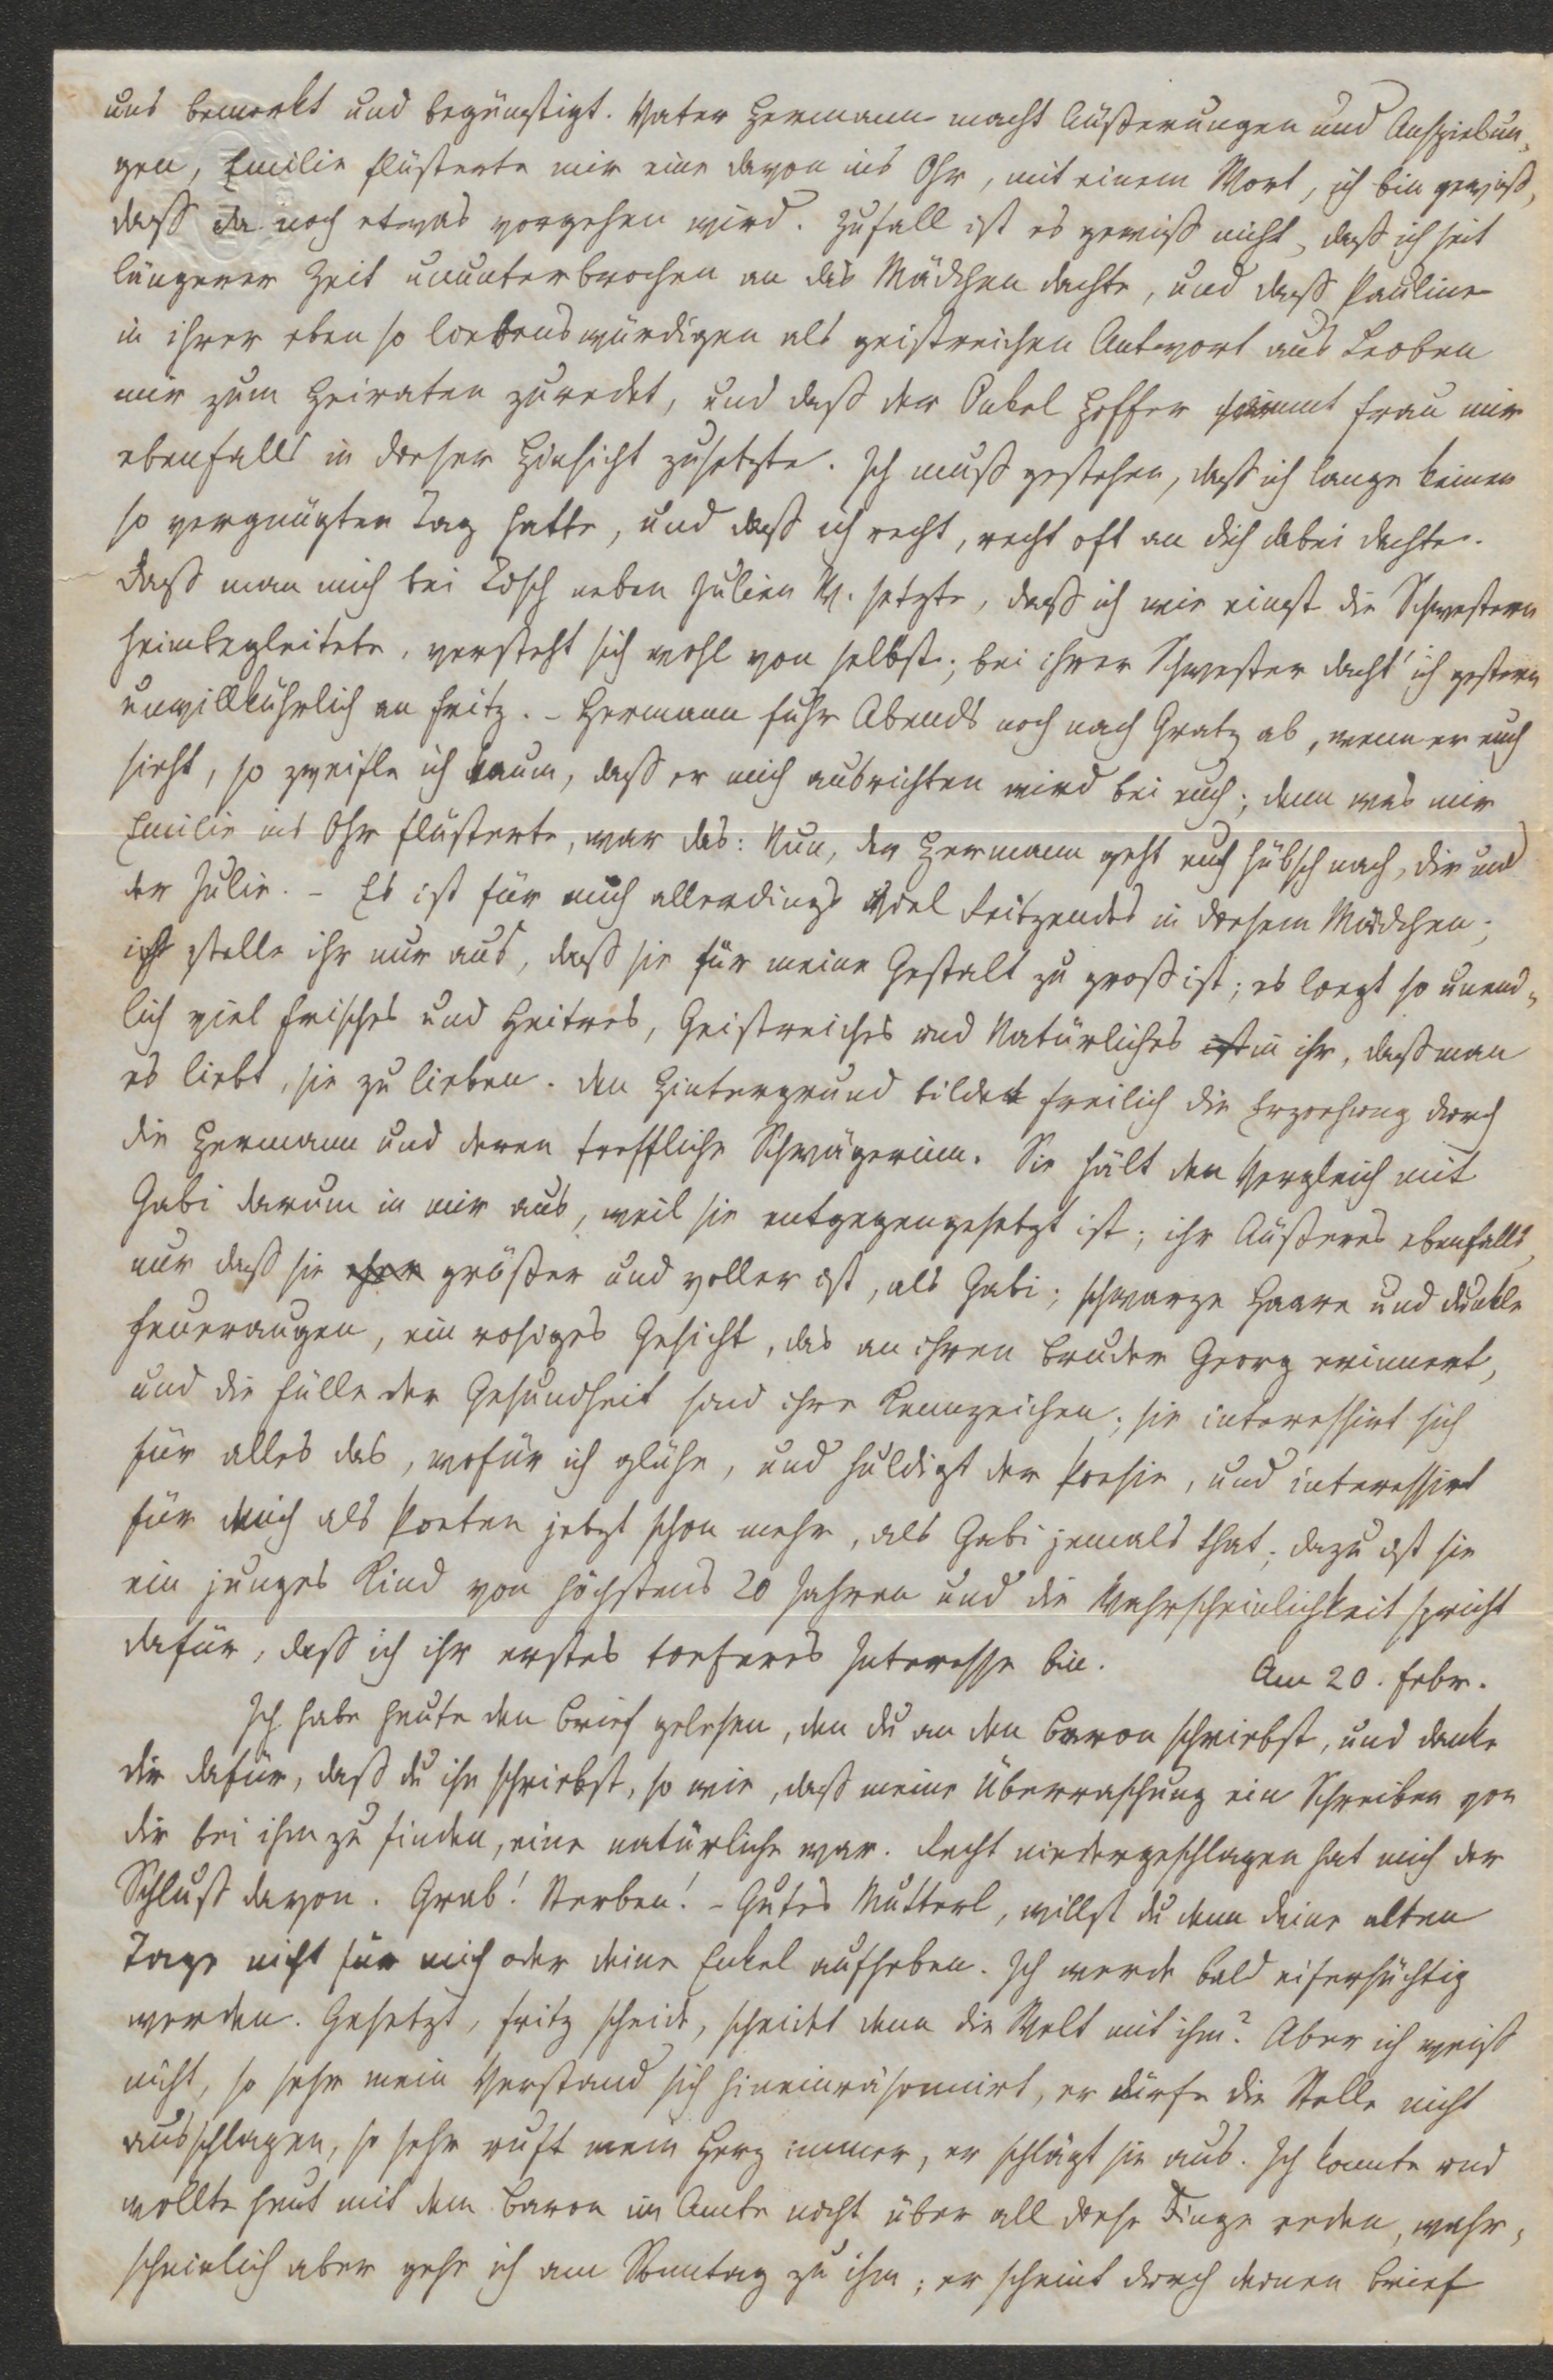 uns bemerkt und begünstigt. Vater Hermann macht Äußerungen und Anspielun„
gen, Emilie flüsterte mir eine davon ins Ohr, mit einem Wort, ich bin gewiß,
daß da noch etwas vorgehen wird. Zufall ist es gewiß nicht, daß ich seit
längerer Zeit ununterbrochen an das Mädchen dachte, und daß Pauline
in ihrer eben so liebenswürdigen als geistreichen Antwort aus Leoben
mir zum Heiraten zuredet, und daß der Onkel Hoffer sammt Frau mir
ebenfalls in dieser Hinsicht zusetzte. Ich muß gestehen, daß ich lange keinen
so vergnügten Tag hatte, und daß ich recht, recht oft an dich dabei dachte.
Daß man mich bei Tisch neben Julien W. setzte, daß ich wie einst die Schwestern
heimbegleitete, versteht sich wohl von selbst; bei ihrer Schwester dacht' ich gestern
unwillkührlich an Fritz. – Hermann fuhr Abends noch nach Gratz ab, wenn er euch
sieht, so zweifle ich kaum, daß er mich ausrichten wird bei euch; denn was mir
Emilie ins Ohr flüsterte, war das: Nun, der Hermann geht euch hübsch nach, dir und
der Julie. – Es ist für mich allerdings viel Reitzendes in diesem Mädchen;
ich stelle ihr nur aus, daß sie für meine Gestalt zu groß ist; es liegt so unend„
lich viel Frisches und Heitres, Geistreiches und Natürliches ist in ihr, daß man
es liebt, sie zu lieben. Den Hintergrund bildet freilich die Erziehung durch
die Hermann und deren treffliche Schwägerinn. Sie hält den Vergleich mit
Gabi darum in mir aus, weil sie entgegengesetzt ist; ihr Äußeres ebenfalls,
nur daß sie eher größer und voller ist, als Gabi; schwarze Haare und dunkle
Feueraugen, ein rosiges Gesicht, das an ihren Bruder Georg erinnert,
und die Fülle der Gesundheit sind ihre Kennzeichen; sie interessirt sich
für alles das, wofür ich glühe, und huldigt der Poesie, und interessirt
für mich als Poeten jetzt schon mehr, als Gabi jemals that; dazu ist sie
ein junges Kind von höchstens 20 Jahren und die Wahrscheinlichkeit spricht
dafür, daß ich ihr erstes tieferes Interesse bin.
Am 20. Febr.
Ich habe heute den Brief gelesen, den du an den Baron schriebst, und danke
dir dafür, daß du ihn schriebst, so wie, daß meine Überraschung ein Schreiben von
dir bei ihm zu finden, eine natürliche war. Recht niedergeschlagen hat mich der
Schluß davon. Grab! Sterben! – Gutes Mutterl, willst du denn deine alten
Tage nicht für mich oder deine Enkel aufheben. Ich werde bald eifersüchtig
werden. Gesetzt, Fritz scheide, scheidet denn die Welt mit ihm? Aber ich weiß
nicht, so sehr mein Verstand sich hineinräsonnirt, er dürfe die Stelle nicht
ausschlagen, so sehr ruft mein Herz immer, er schlägt sie aus. Ich konnte und
wollte heut mit dem Baron im Amte nicht über all diese Dinge reden, wahr„
scheinlich aber gehe ich am Sonntag zu ihm; er scheint durch deinen Brief